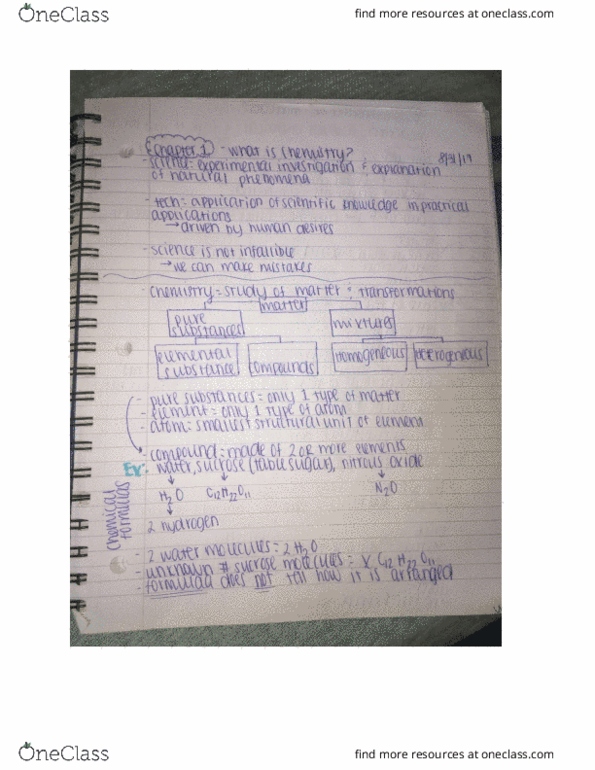 OneClass
find more resources at oneclass.com
Chapter 1 - What is Chemistry?
8/31/19
- science = experimental investigation & explanation
of natural phenomena
- tech = application of scientific knowledge in practical
applications
→ driven by human desires
- science is not infallible
→ we can make mistakes
- Chemistry = study of matter & transformations
matter
pure
substances
mixtures
elemental
substance
compounds
homogeneous
heterogeneous
- pure substances = only 1 type of matter
- element = only 1 type of atom
- atom = smallest structural unit of element
- compound = made of 2 or more elements
Ex: water, sucrose (table sugar), nitrous oxide
H₂O
C₁₂H₂₂O₁₁
N₂O
chemical
formulas
2 hydrogen
- 2 water molecules = 2 H₂O
- unknown # sucrose molecules = X C₁₂H₂₂O₁₁
- does not tell how it is arranged
OneClass
find more resources at oneclass.com